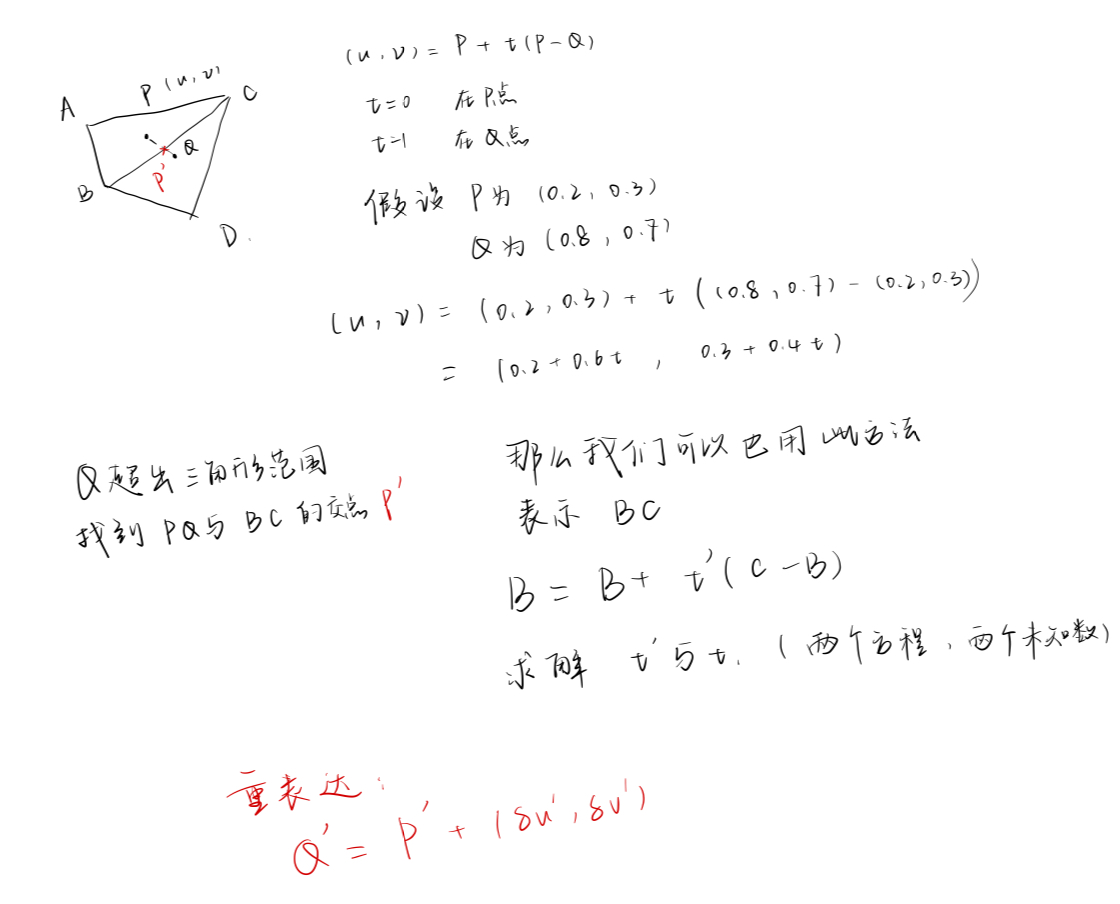 (u, v) = P + t(P-Q)
t=0 在P点
t=1 在Q点
A
P (u, v)
C
Q
P'
B
D.
假设 P为 (0.2, 0.3)
Q为 (0.8, 0.7)
(u, v) = (0.2, 0.3) + t ((0.8, 0.7) - (0.2, 0.3))
= (0.2 + 0.6t , 0.3 + 0.4t)
Q超出三角形范围
找到 PQ与 BC的交点 P'
那么我们可以也用此方法
表示 BC
B = B + t'(C-B)
求解 t'与t. (两个方程,两个未知数)
重表达:
Q' = P' + (δu', δv')